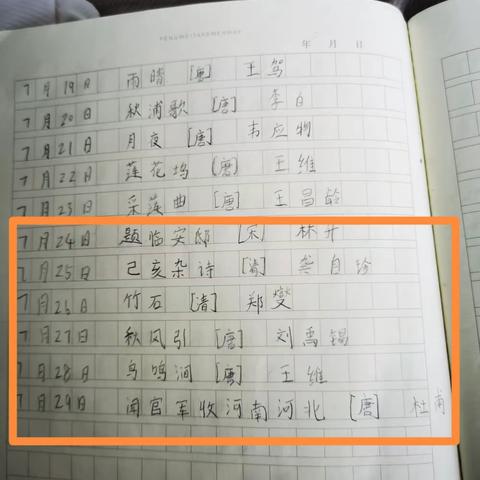 年 月 日
7月19日 雨晴 [唐] 王驾
7月20日 秋浦歌 [唐] 李白
7月21日 月夜 [唐] 韦应物
7月22日 莲花坞 [唐] 王维
7月23日 采莲曲 [唐] 王昌龄
7月24日 题临安邸 [宋] 林升
7月25日 己亥杂诗 [清] 龚自珍
7月26日 竹石 [清] 郑燮
7月27日 秋风引 [唐] 刘禹锡
7月28日 鸟鸣涧 [唐] 王维
7月29日 闻官军收河南河北 [唐] 杜甫